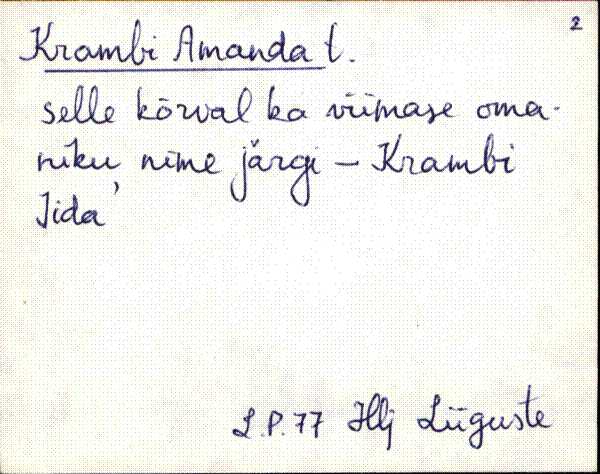 2
Krambi Amanda t.
selle kõrval ka viimase oma-
niku nime järgi – Krambi
Iida'
L.P. 77 Hlj Liiguste